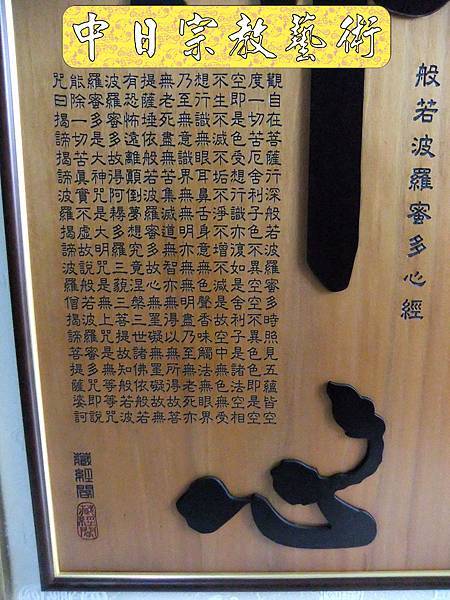 中日宗教藝術
般若波羅蜜多心經
心
觀自在菩薩行深般若波羅蜜多時照見五蘊皆空
度一切苦厄舍利子色不異空空不異色色即是空
空即是色受想行識亦復如是舍利子是諸法空相
不生不滅不垢不淨不增不減是故空中無色無受
想行識無眼耳鼻舌身意無色聲香味觸法無眼界
乃至無意識界無無明亦無無明盡乃至無老死亦
無老死盡無苦集滅道無智亦無得以無所得故菩
提薩埵依般若波羅蜜多故心無罣礙無罣礙故無
有恐怖遠離顛倒夢想究竟涅槃三世諸佛依般若
波羅蜜多故得阿耨多羅三藐三菩提故知般若波
羅蜜多是大神咒是大明咒是無上咒是無等等咒
能除一切苦真實不虛故說般若波羅蜜多咒即說
咒曰揭諦揭諦波羅揭諦波羅僧揭諦菩提薩婆訶
藏經閣
藏經閣